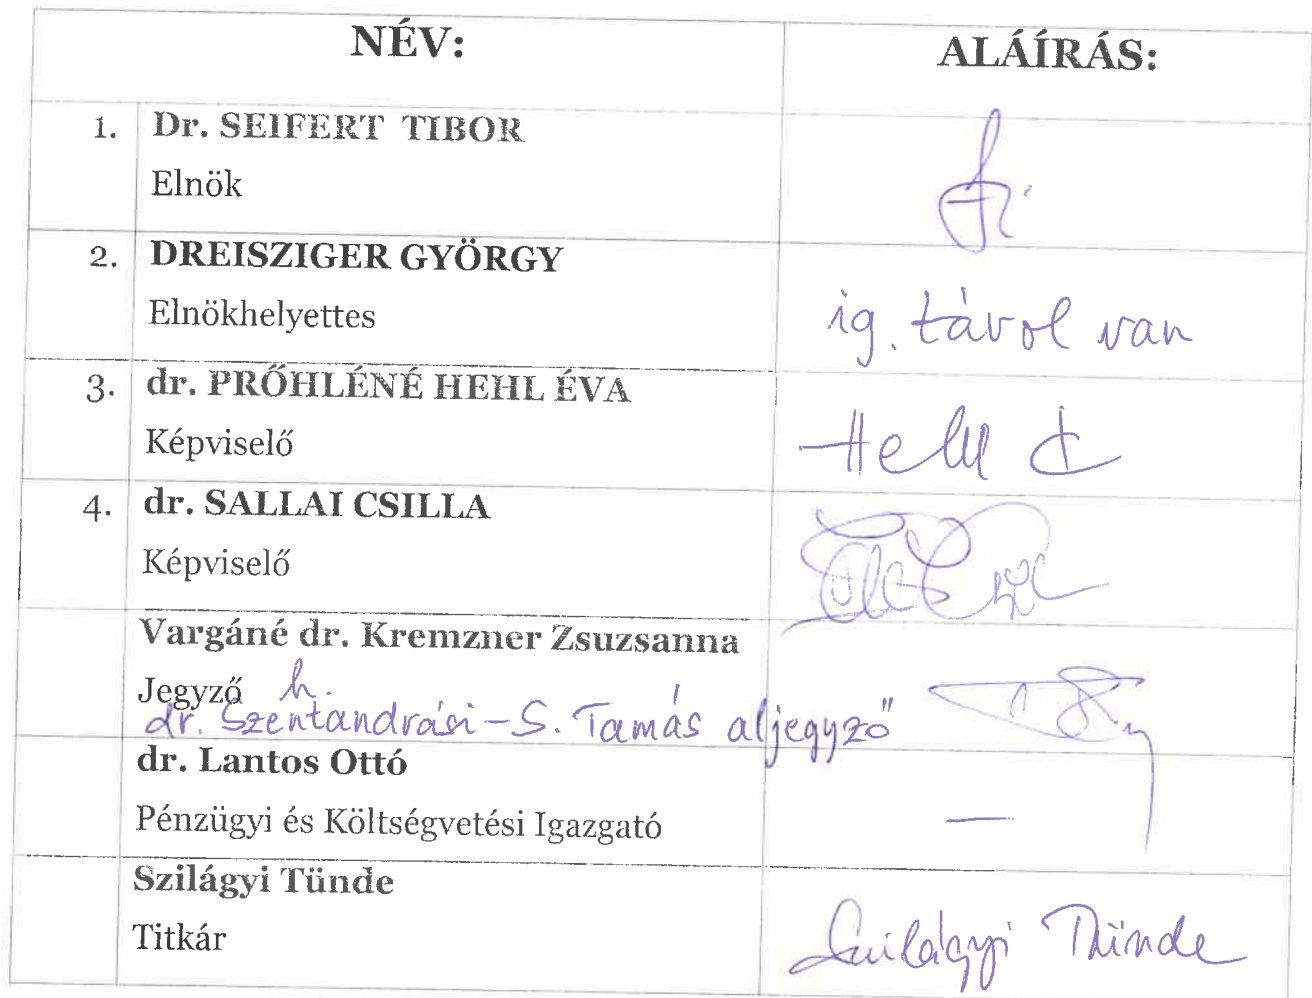 NÉV:
ALÁÍRÁS:
1. Dr. SEIFERT TIBOR
Elnök
2. DREISZIGER GYÖRGY
Elnökhelyettes
ig. távol van
3. dr. PRŐHLÉNÉ HEHL ÉVA
Képviselő
Hehl É
4. dr. SALLAI CSILLA
Képviselő
Vargáné dr. Kremzner Zsuzsanna
Jegyző h.
dr. Szentandrási-S. Tamás aljegyző
dr. Lantos Ottó
Pénzügyi és Költségvetési Igazgató
—
Szilágyi Tünde
Titkár
Szilágyi Tünde